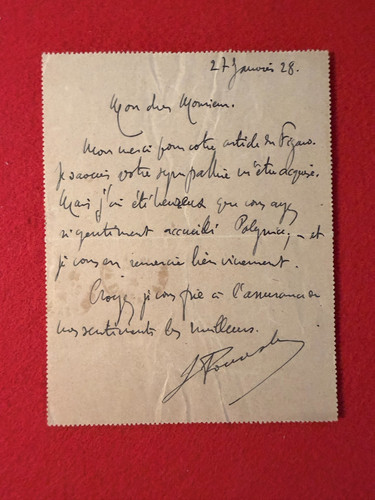 27 Janvier 28.
Mon cher Monsieur.
Mon merci pour votre article du Figaro.
Je savais votre sympathie m'être acquise.
Mais j'ai été heureux que vous ayez
si gentiment accueilli ; - et
je vous en remercie bien vivement.
Croyez je vous prie à l'assurance de
mes sentiments les meilleurs.